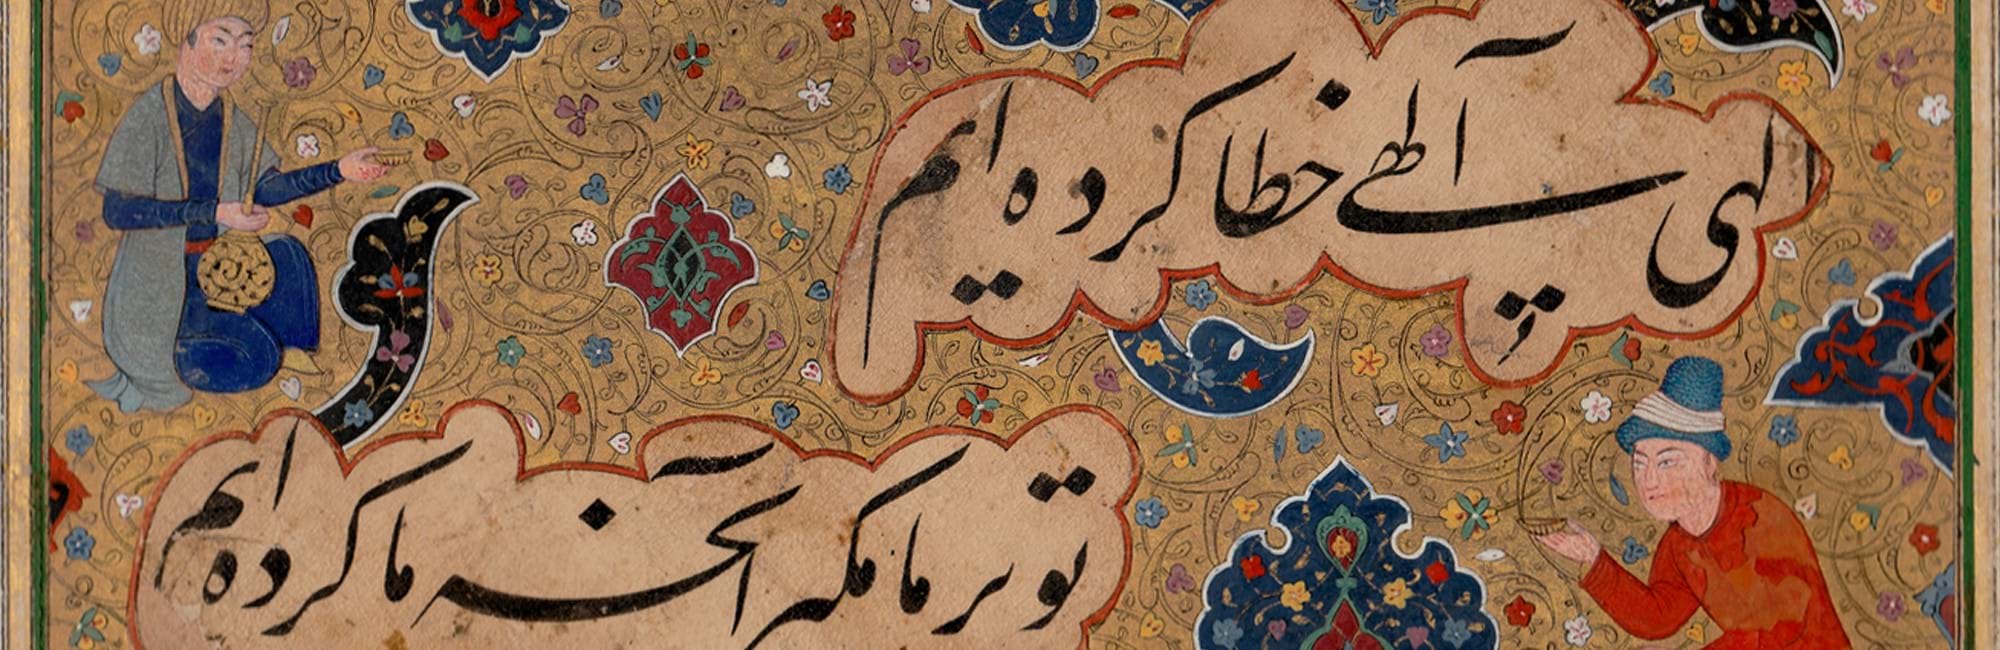 الهی الهی خطا کرده ایم
تو بر ما مکیر آنچه ما کرده ایم